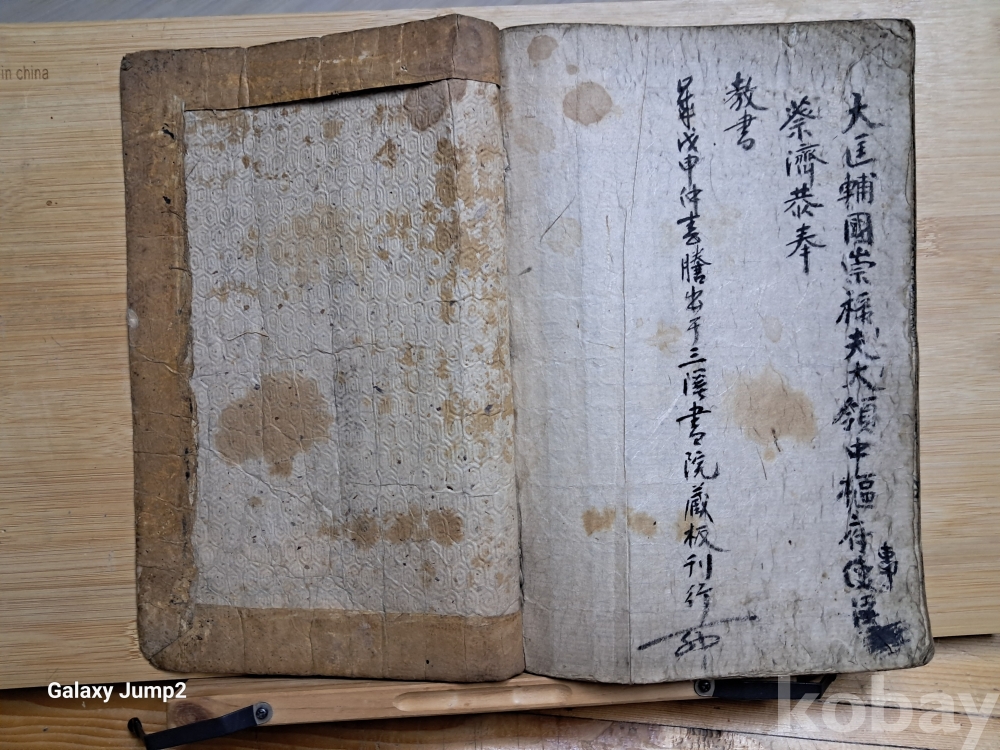 大匡輔國崇祿夫大領中樞府
事
蔡濟恭奉
敎書
戊申仲春謄出于三溪書院藏板刊行
in china
Galaxy Jump2
kobay